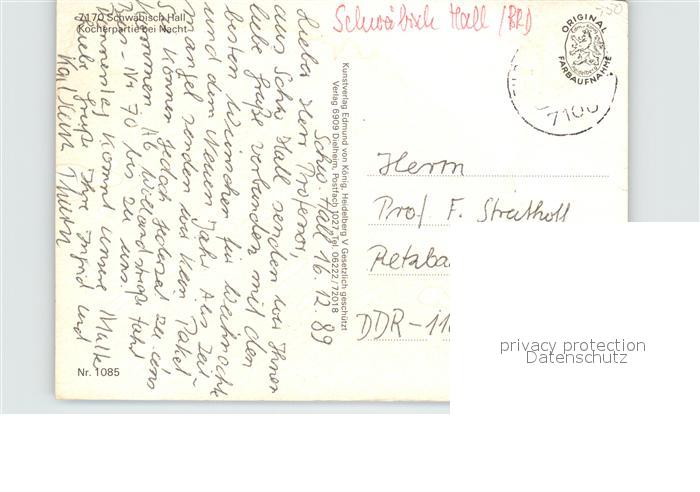 7170 Schwäbisch Hall
Kocherpartie bei Nacht
Schwäbisch Hall (BRD)
550
ORIGINAL
FARBAUFNAHME
7100
Schw. Hall 16.12.89
Lieber Herr Professor,
aus Schw. Hall senden wir Ihnen
liebe Grüße verbunden mit den
besten Wünschen für Weihnacht
und dem Neuen Jahr. Aus Zeit-
mangel senden wir kein Paket
Sie können jedoch jederzeit zu uns
kommen. Ab Wielandstraße fährt
Bus-Nr 70 bis zu uns.
kommt unsere
liebe Grüße Ihre Ingrid und
Karl Heinz
Kunstverlag Edmund von König, Heidelberg V Gesetzlich geschützt
Verlag 6909 Dielheim, Postfach 1027, Tel. 06222/72018
Herrn
Prof F. Strathoff
DDR-11
Nr. 1085
privacy protection
Datenschutz